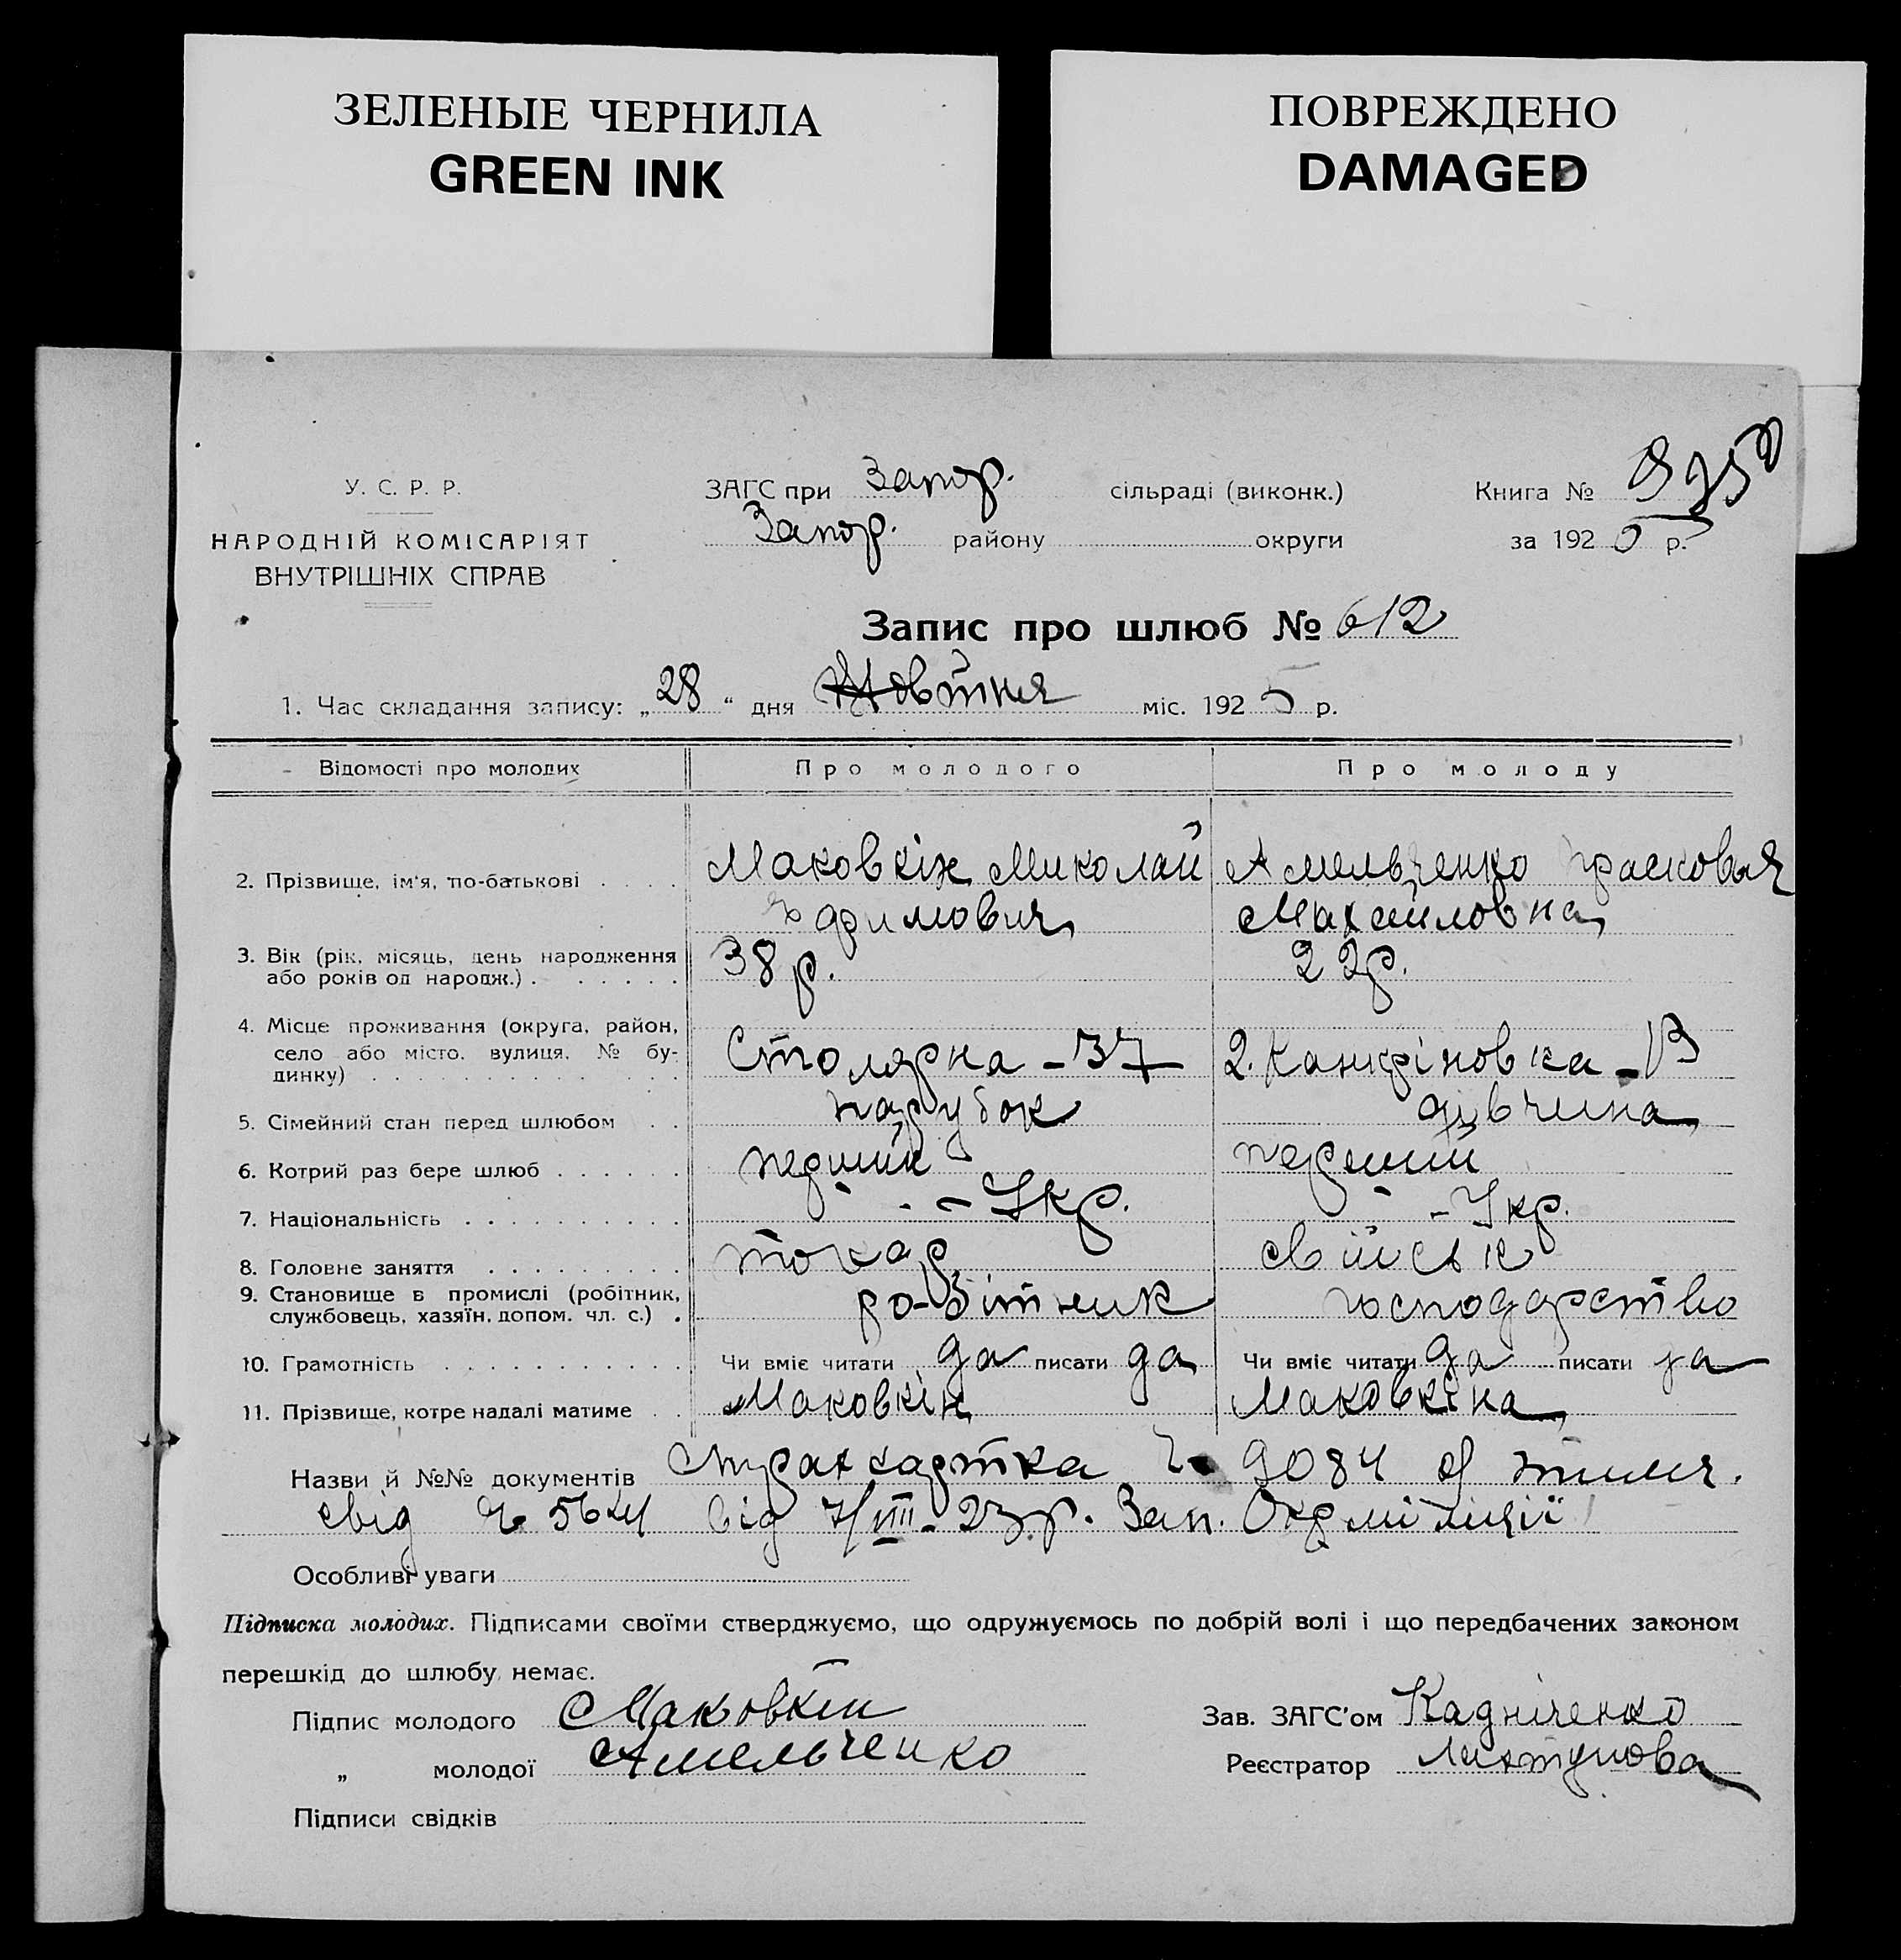 ЗЕЛЕНЫЕ ЧЕРНИЛА
GREEN INK
ПОВРЕЖДЕНО
DAMAGED
У. С. Р. Р.
НАРОДНІЙ КОМІСАРІЯТ
ВНУТРІШНІХ СПРАВ
ЗАГС при Запор. сільраді (виконк.)
Запор. району округи
Книга №
за 1925 р.
Запис про шлюб № 612
1. Час складання запису: „28“ дня Жовтня міс. 1925 р.
Відомості про молодих Про молодого Про молоду
2. Прізвище, ім'я, по-батькові . . . . Маковкін Миколай Амельченко Прасковья
Юфимович Михайловна
3. Вік (рік, місяць, день народження 38 р. 22 р.
або років од народж.) . . . . . .
4. Місце проживання (округа, район,
село або місто, вулиця, № бу- Столярна - 37 2. Канкріновка - 13
динку) . . . . . . . . . . . . . .
5. Сімейний стан перед шлюбом . . парубок дівчина
6. Котрий раз бере шлюб . . . . . . перший перший
7. Національність . . . . . . . . . . - Укр. - Укр.
8. Головне заняття . . . . . . . . . токар свійськ
9. Становище в промислі (робітник, робітник господарство
службовець, хазяїн, допом. чл. с.) .
10. Грамотність . . . . . . . . . . . Чи вміє читати да писати да Чи вміє читати да писати да
11. Прізвище, котре надалі матиме . . Маковкін Маковкіна
Назви й №№ документів Страхкартка Ч. 9084 й тимч.
свід Ч. від 7/III-23 р. Зап. Окрміліції
Особливі уваги
Підписка молодих. Підписами своїми стверджуємо, що одружуємось по добрій волі і що передбачених законом
перешкід до шлюбу немає.
Підпис молодого Маковкін
„ молодої Амельченко
Підписи свідків
Зав. ЗАГС'ом Кадніченко
Реєстратор